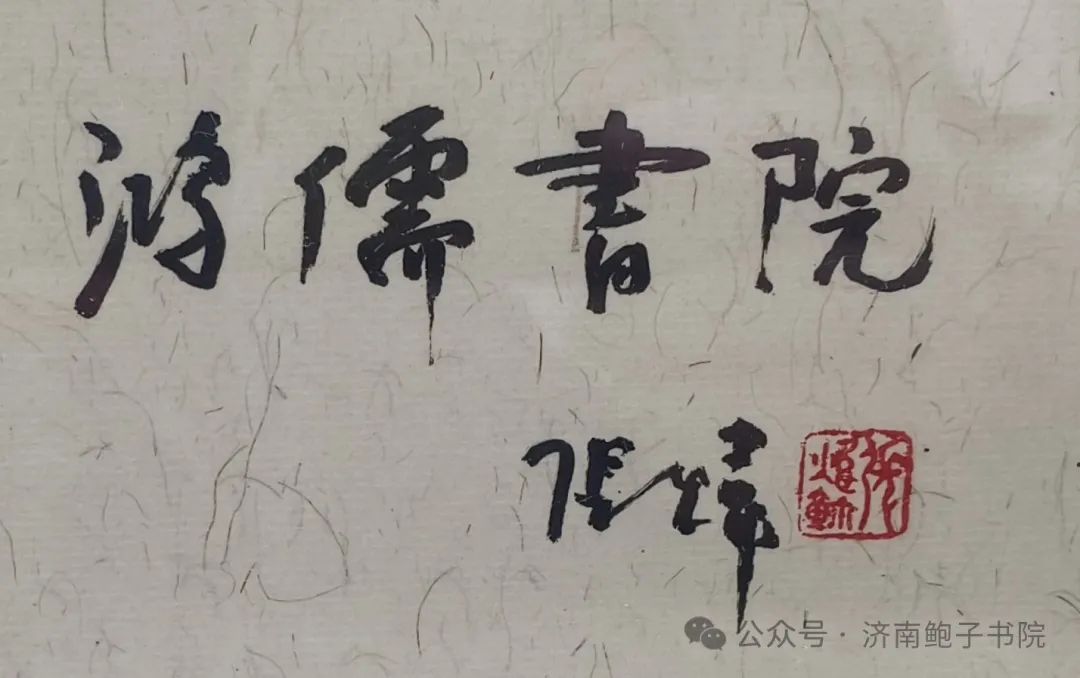 游儒書院
张炜
公众号·济南鲍子书院